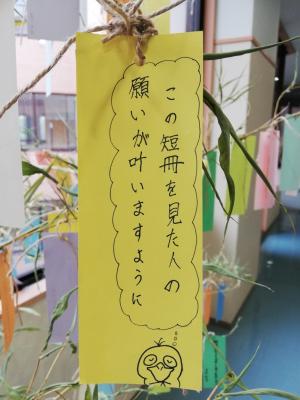 この短冊を見た人の
願いが叶いますように